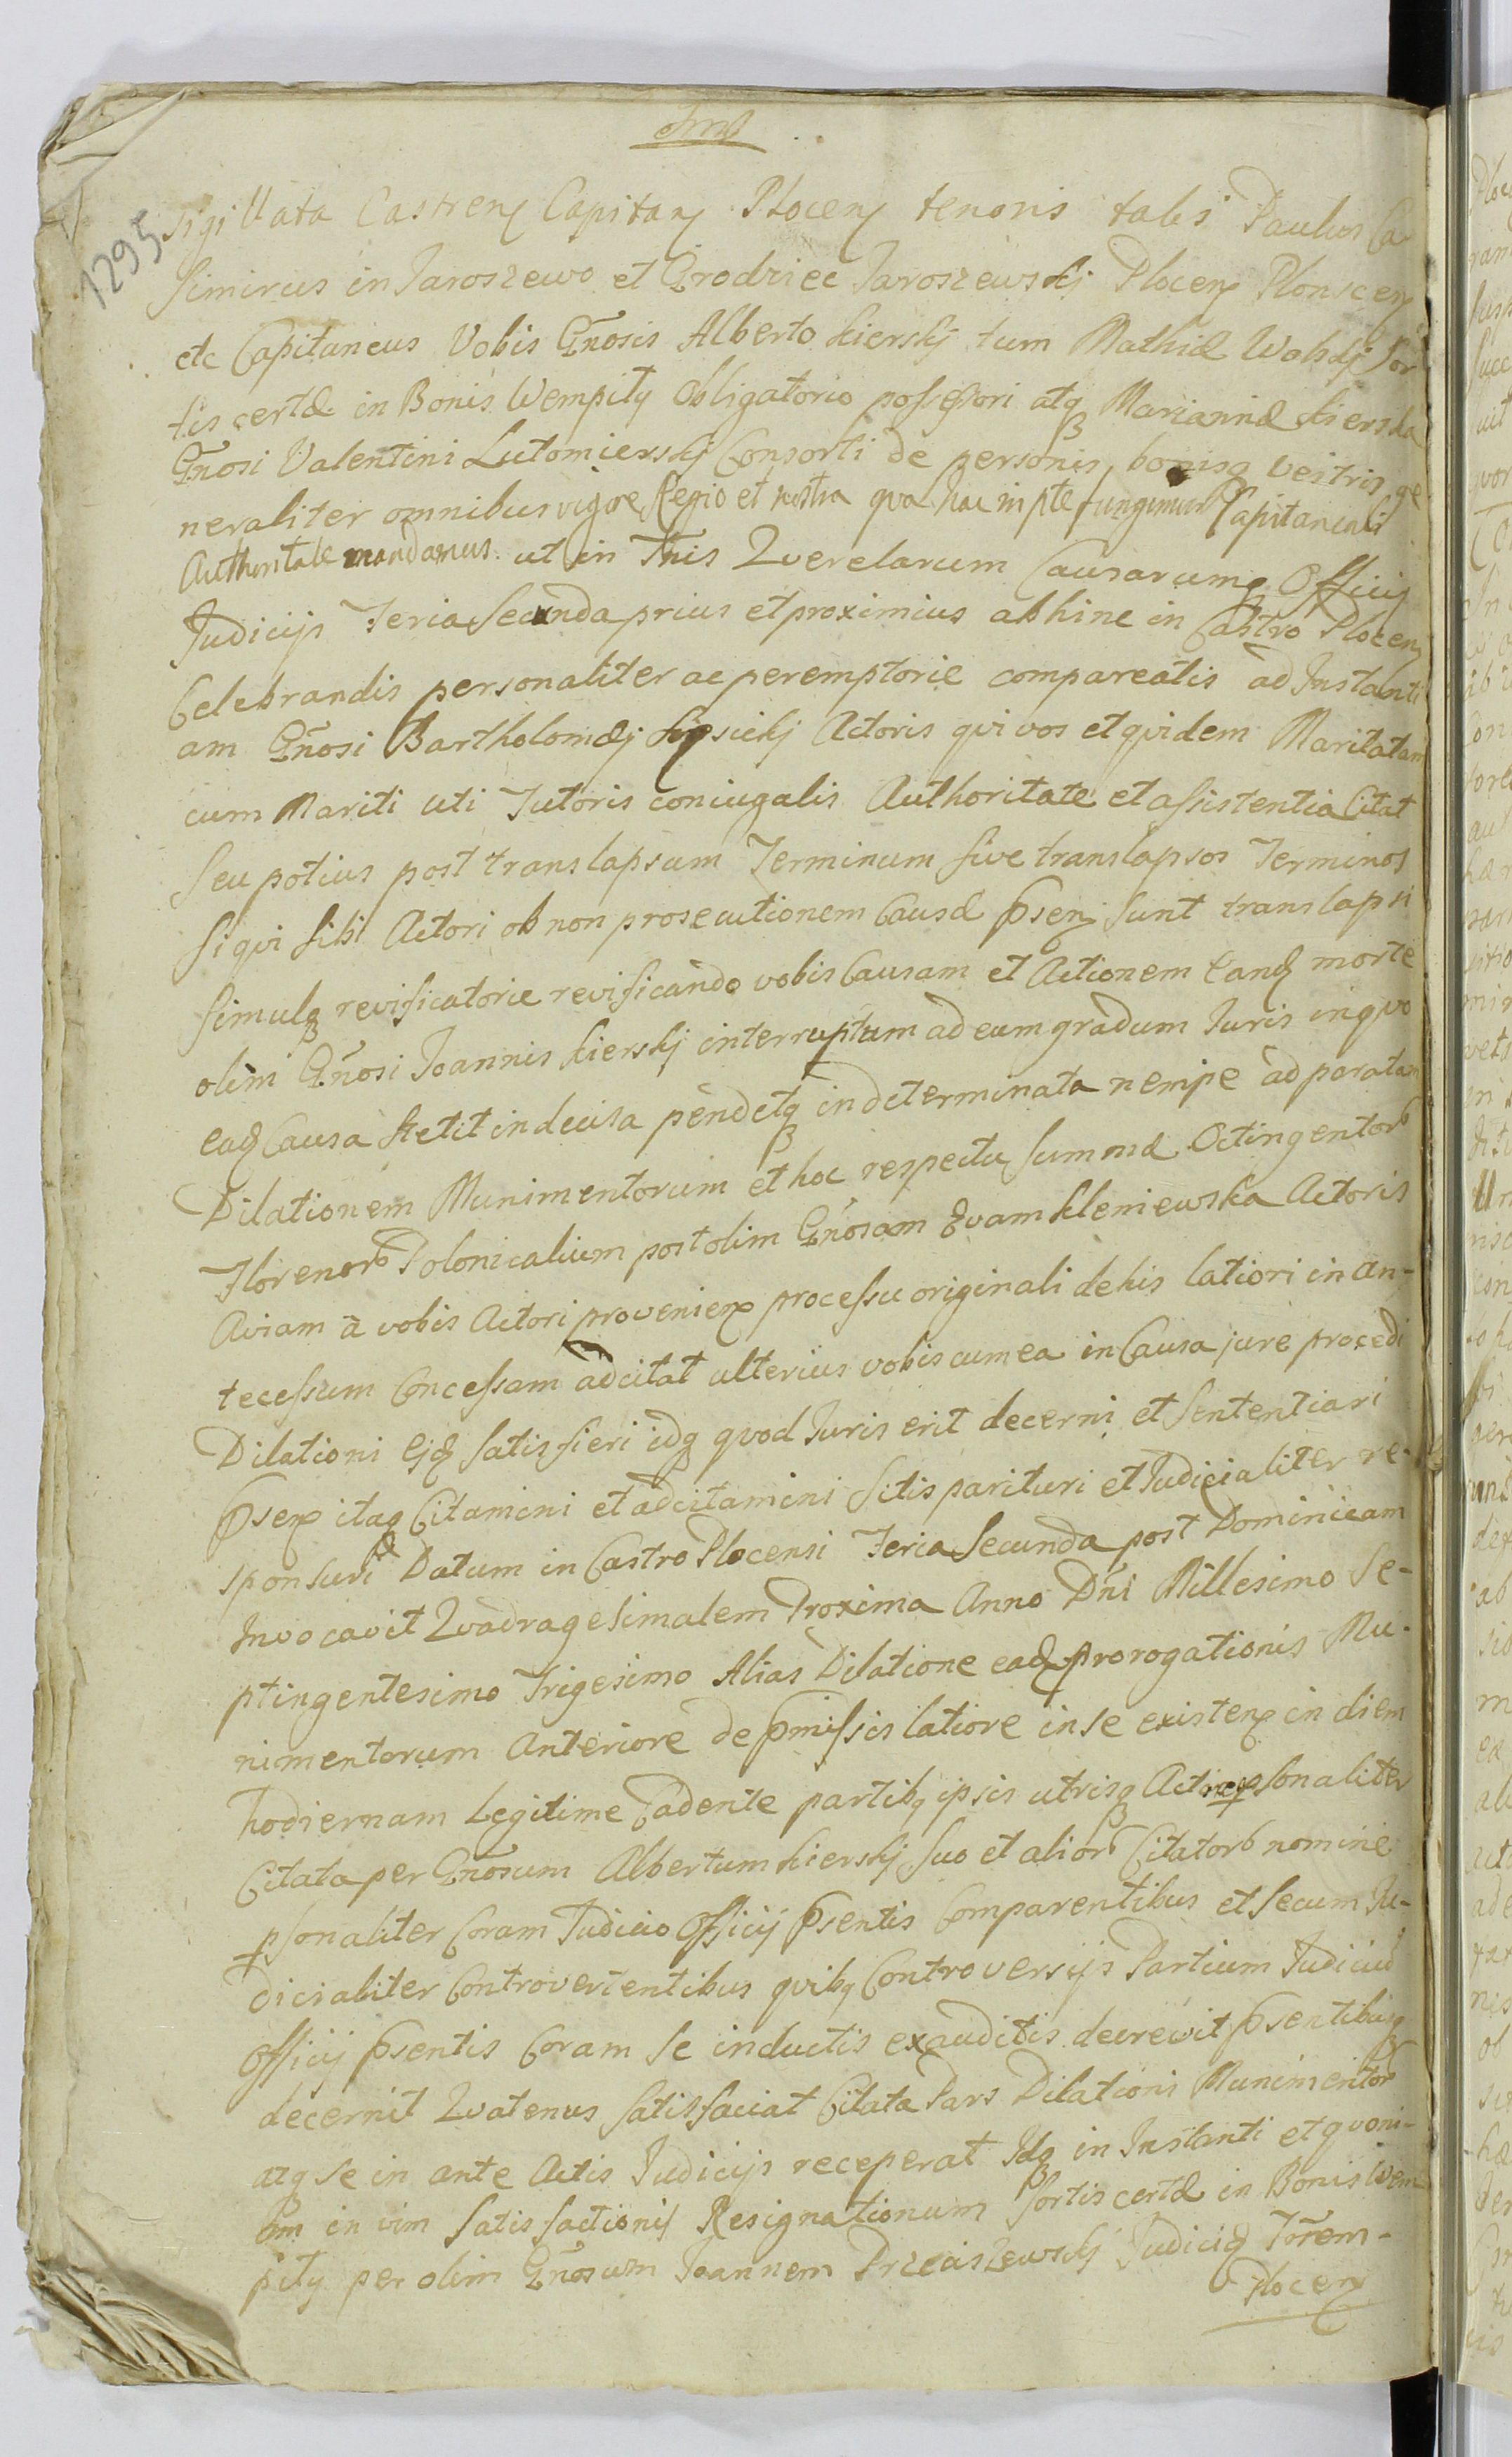 1295
sigillata Castren Capitan Plocen tenoris talis Paulus Ca-
simirus in Jaroszewo et Grodziec Jaroszewskj Plocen Plonscen
etc Capitaneus Vobis Gnosis Alberto kierskj tum Mathiæ Wolskj Sor-
tis certæ in Bonis Wempity Obligatorio possessori atq Mariannæ kierska
Gnosi Valentini Lutomierskj Consorti de personis bonisq vestris ge
neraliter omnibus vigore Regio et nostra qva hac in pte fungimur Capitaneali
Authoritate mandamus ut in Tnis Qverelarum Causarumq Officij
Judicijs Feria Secunda prius et proximius abhinc in Castro Plocen
Celebrandis personaliter ac peremptorie compareatis ad Instanti
am Gnosi Bartholomæj Actoris qvi vos et qvidem Maritatam
cum Mariti uti Tutoris coniugalis Authoritate et assistentia Citat
seu potius post translapsum Terminum sive translapsos Terminos
si qvi sibi Actori ob non prosecutionem Causæ Psen sunt translapsi
simulq revificatorie revificando vobis Causam et Actionem eanq morte
olim Gnosi Joannis kierskj interruptam ad eum gradum Juris in qvo
eaq Causa stetit indecisa pendetq indeterminata nempe ad paratam
Dilationem Munimentorum et hoc respectu summæ Octingentor
Florenor Polonicalium post olim Gnosam Evam kleniewska Actoris
Aviam à vobis Actori provenien processu originali de his latiori in an-
tecessum Concessam adcitat ulterius vobiscum ea in Causa jure procedi
Dilationi ejq satisfieri idq qvod Juris erit decerni et sententiari
Psen itaq Citamini et adcitamini sitis parituri et Judicialiter re-
sponsuri Datum in Castro Plocensi Feria Secunda post Dominicam
Invocavit Qvadragesimalem Proxima Anno Dni Millesimo Se-
ptingentesimo Trigesimo Alias Dilatione eaq Prorogationis Mu-
nimentorum Anteriore de Pmissis latiore in se existen in diem
hodiernam Legitime Cadente partibq ipsis utrisq Actrice psonaliter
Citata per Gnosum Albertum kierskj suo et alior Citator nomine
psonaliter Coram Judicio Officij Psentis Comparentibus et secum Ju-
dicialiter Controvertentibus qvibq Controversijs Partium Judiciu
Officij Psentis Coram se inductis exauditis decrevit Psentibusq
decernit Qvatenus satisfaciat Citata Pars Dilationi Munimentor
atq se in ante Actis Judicijs receperat Idq in Instanti et qvoni-
am in vim satisfactionis Resignationum sortis certæ in Bonis Wem
pity per olim Gnosum Joannem Przeciszewskj Judiciq Trrem-
Plocen